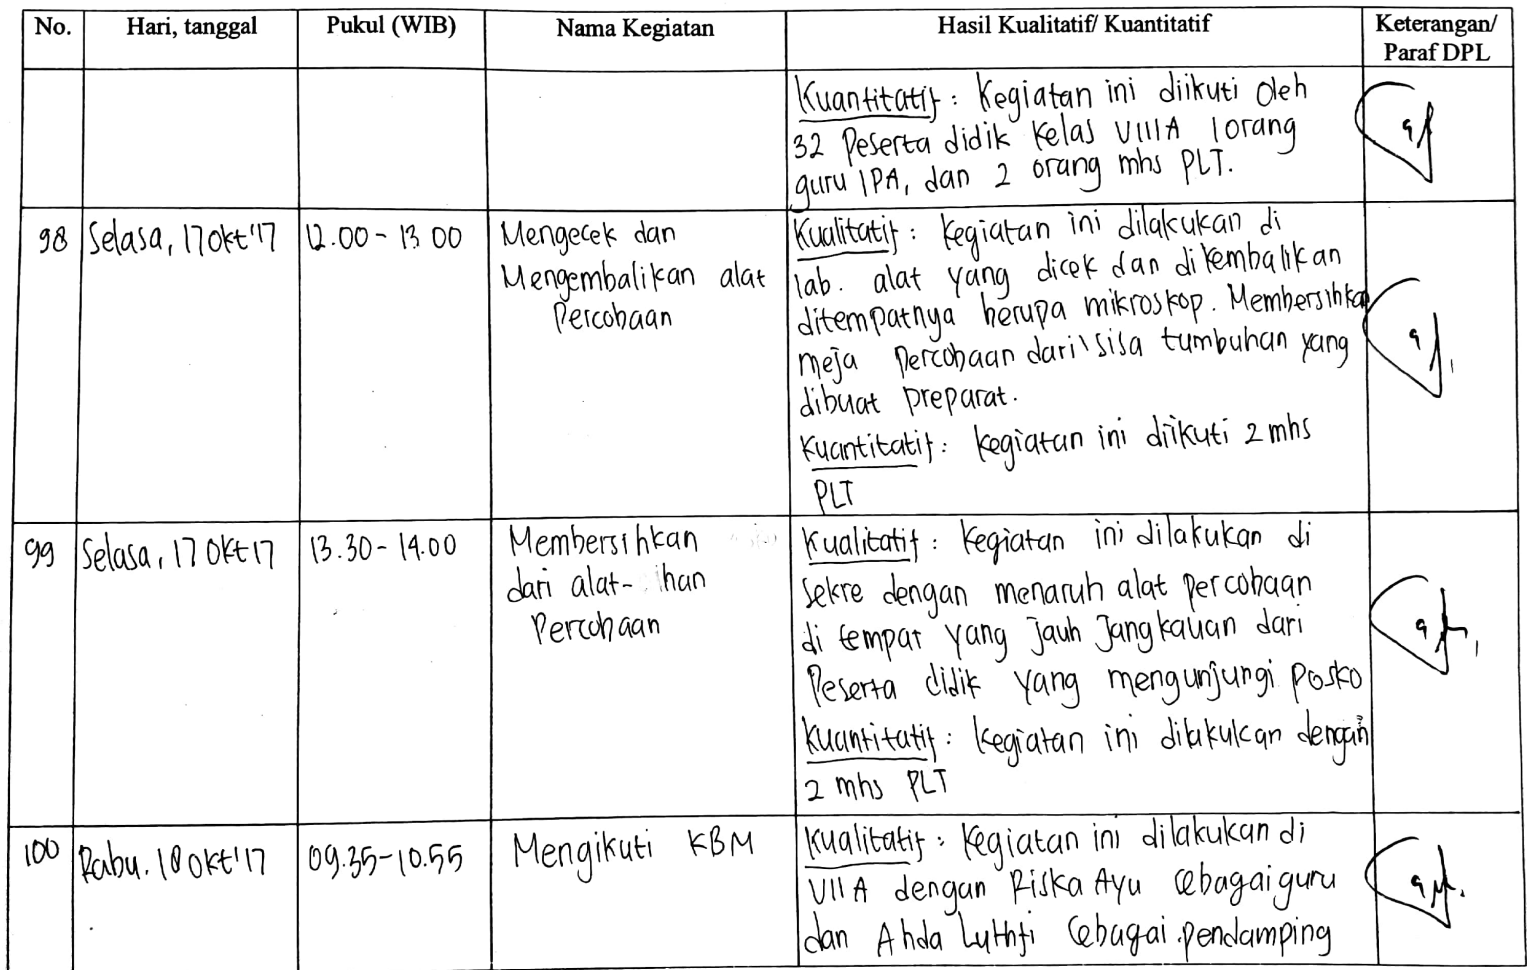 No. Hari, tanggal Pukul (WIB) Nama Kegiatan Hasil Kualitatif/ Kuantitatif Keterangan/
Paraf DPL
Kuantitatif : Kegiatan ini diikuti oleh
32 Peserta didik Kelas VIIIA 1orang
guru IPA, dan 2 orang mhs PLT.
98 Selasa, 17okt'17 12.00 - 13 00 Mengecek dan
Mengembalikan alat
Percobaan
Kualitatif : Kegiatan ini dilakukan di
lab. alat yang dicek dan dikembalikan
ditempatnya berupa mikroskop. Membersihkan
meja percobaan dari sisa tumbuhan yang
dibuat preparat.
Kuantitatif : kegiatan ini diikuti 2 mhs
PLT
99 Selasa, 17 Okt 17 13.30 - 14.00 Membersihkan
dari alat- han
Percobaan
Kualitatif : Kegiatan ini dilakukan di
Sekre dengan menaruh alat percobaan
di tempat yang jauh Jangkauan dari
Peserta didik yang mengunjungi posko
Kuantitatif : kegiatan ini dilakukan dengan
2 mhs PLT
100 Rabu. 18 okt'17 09.35-10.55 Mengikuti KBM
Kualitatif : Kegiatan ini dilakukan di
VII A dengan Riska Ayu sebagai guru
dan Ahda Luthfi sebagai pendamping